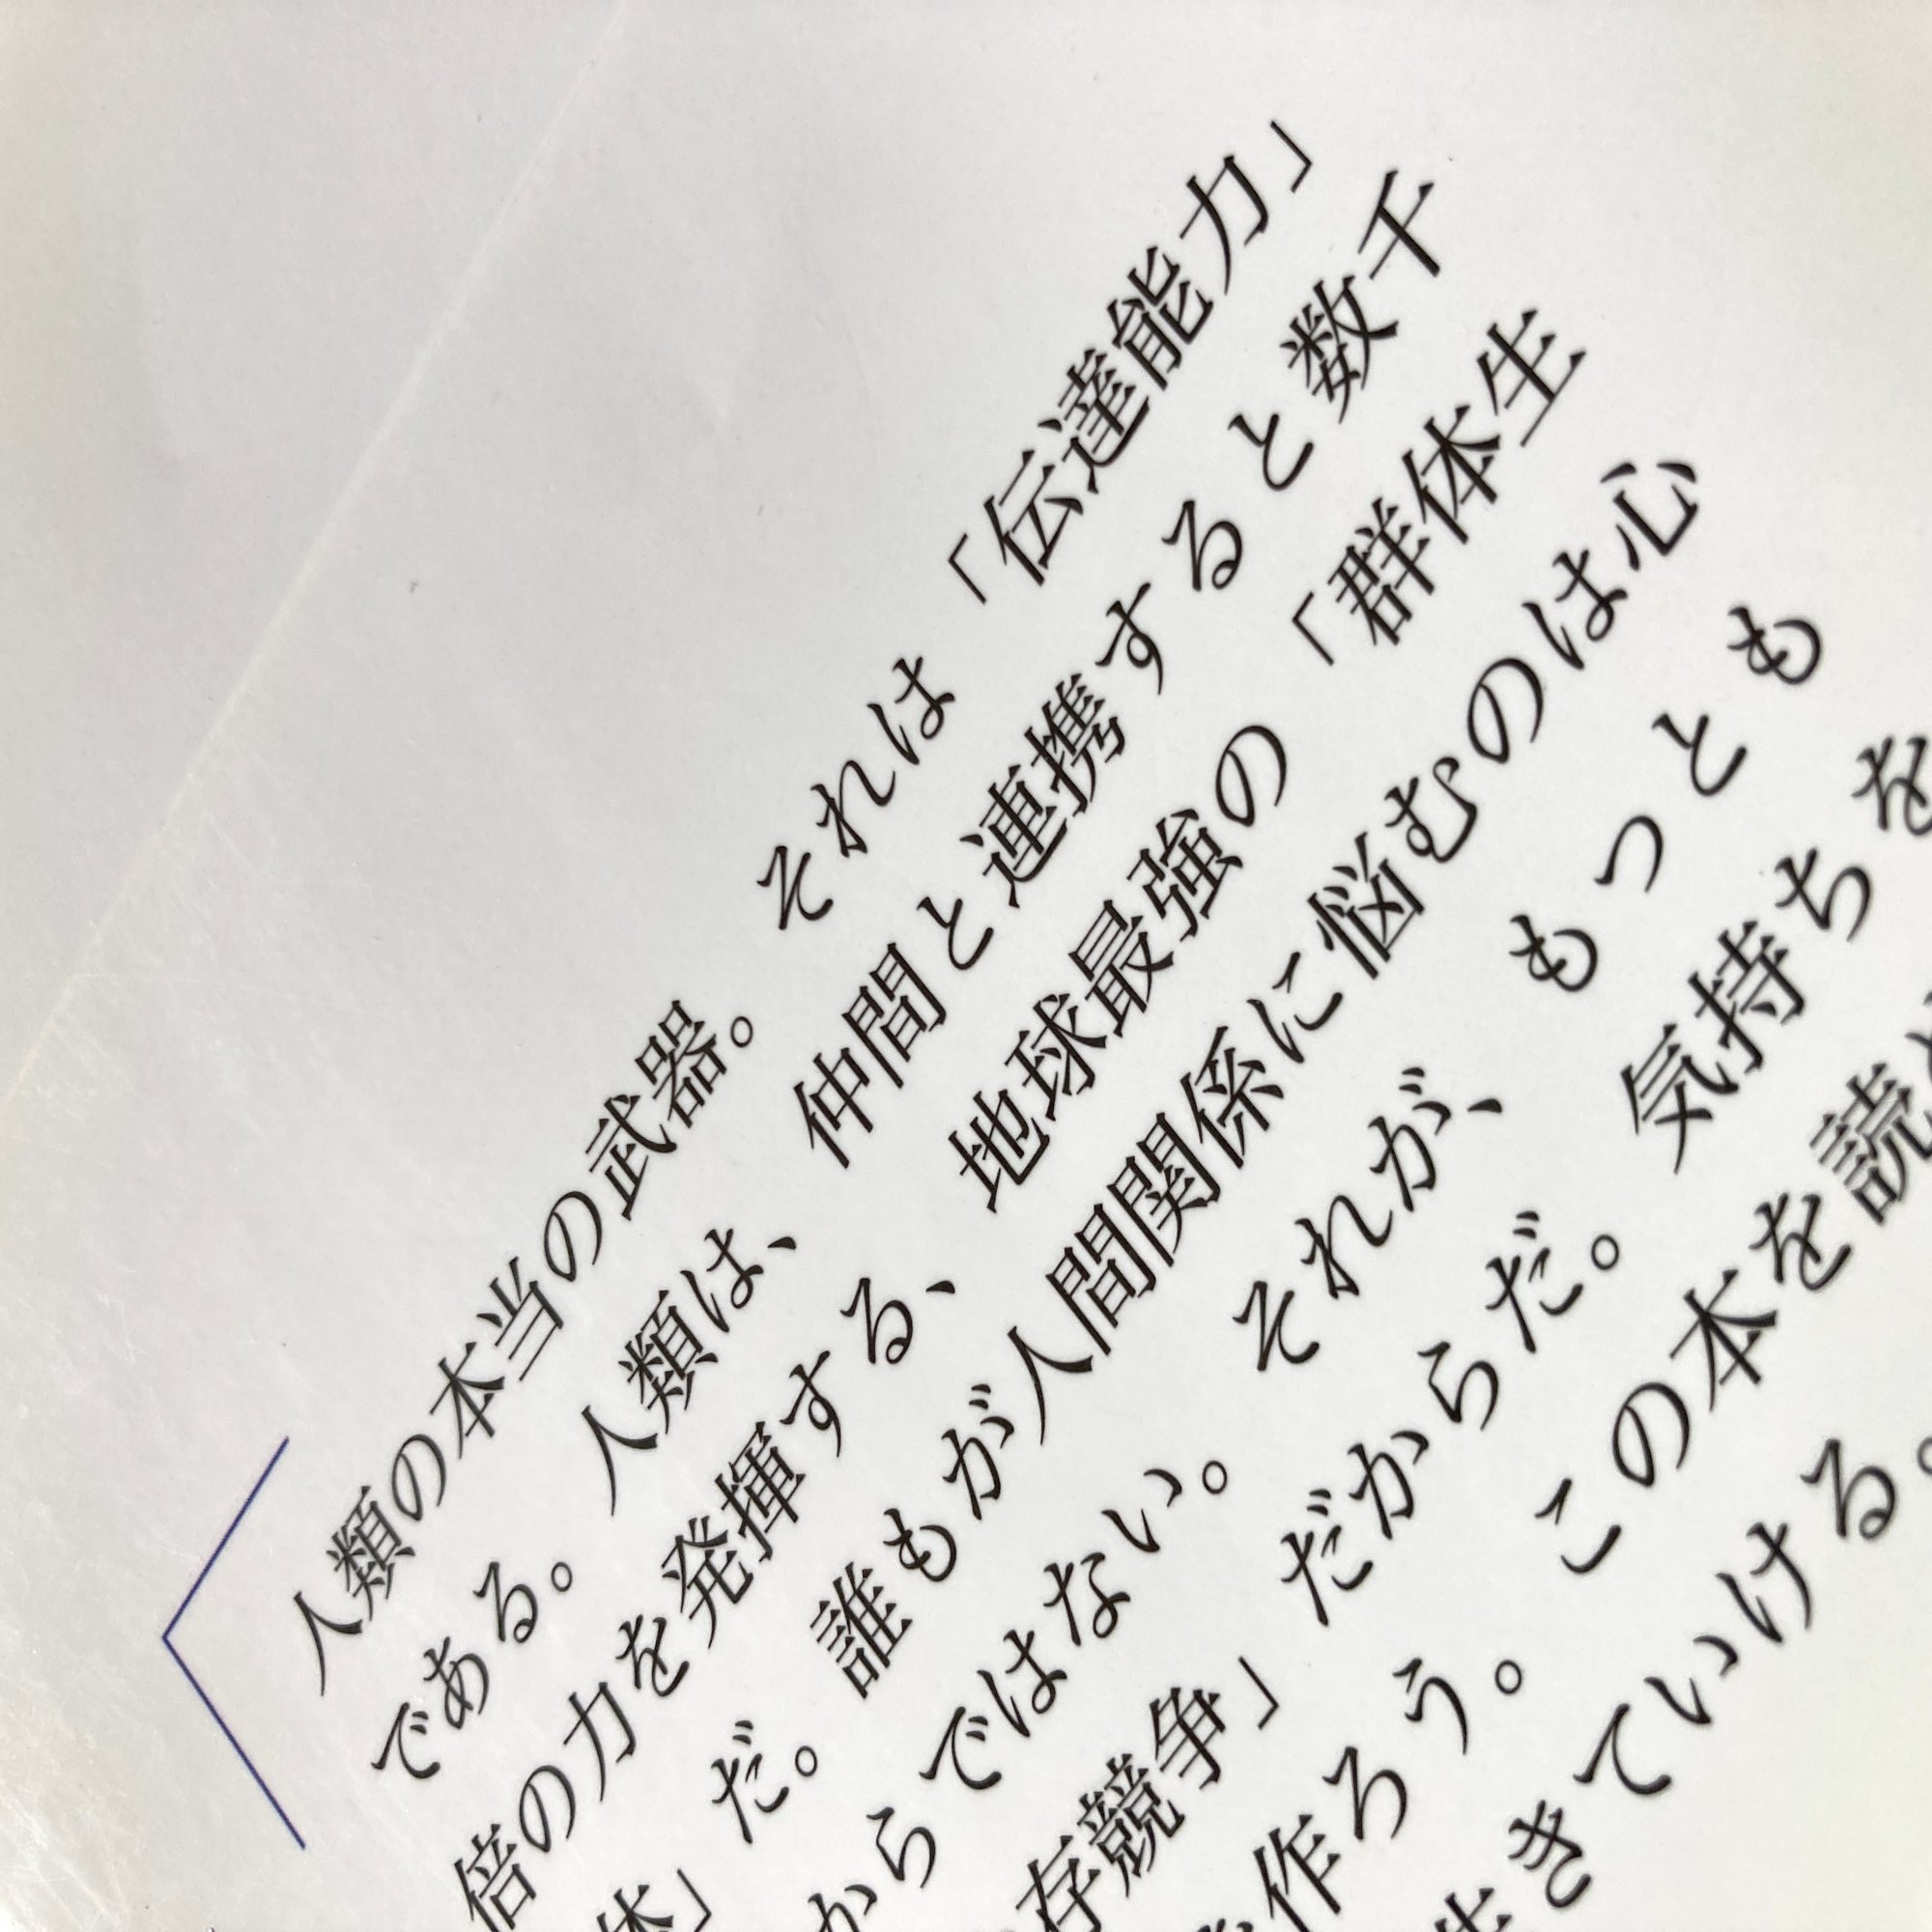 人類の本当の武器。それは「伝達能力」
である。人類は、仲間と連携すると数千
倍の力を発揮する、地球最強の「群体生
体」だ。誰もが人間関係に悩むのは心
からではない。それが、もっとも
存競争」だからだ。気持ちを
作ろう。この本を読
生きていける。